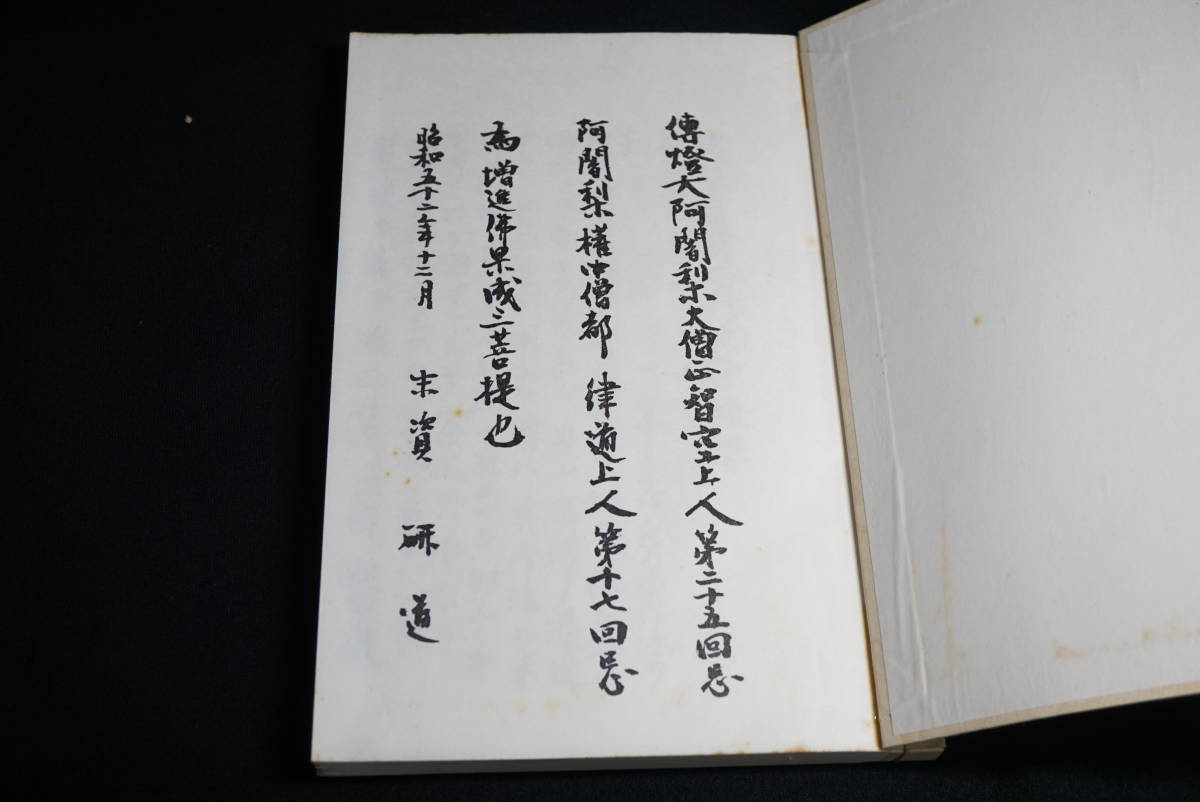 傳燈大阿闍梨大僧正智空上人第二十五回忌
阿闍梨權中僧都 律道上人第十七回忌
為增進佛果成三菩提也
昭和五十二年十二月 末資 研道